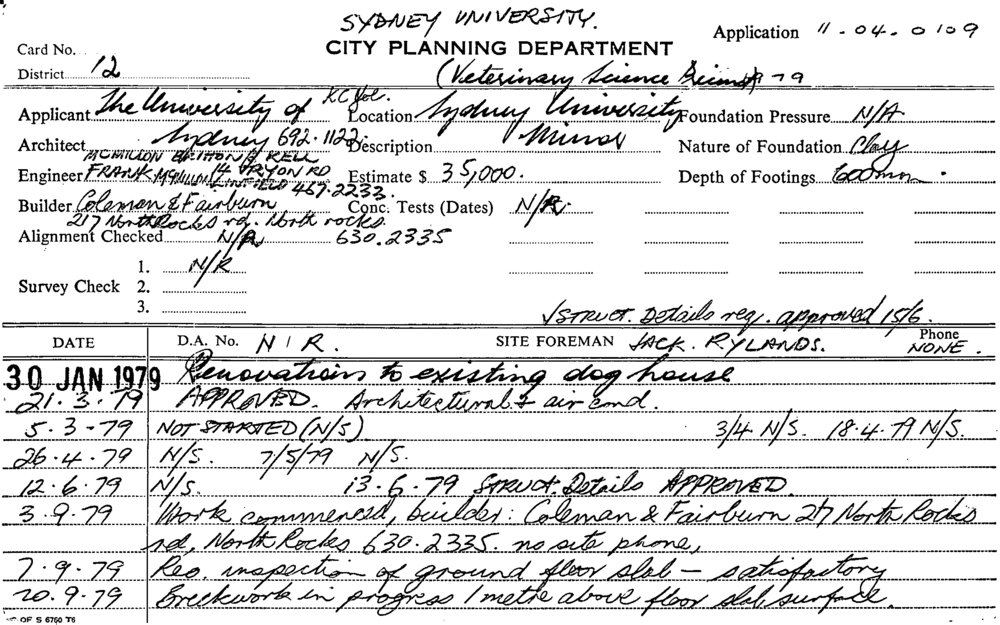 SYDNEY UNIVERSITY.
Application 11.04.0109
Card No.
CITY PLANNING DEPARTMENT
District 12
(Veterinary Science 79
Applicant The University of Location Sydney University Foundation Pressure N/A
Architect Sydney 692.1122. Description Minor Nature of Foundation Clay
& KELL
Engineer FRANK 14 TRYON RD Estimate $ 35,000. Depth of Footings 600mm.
LINFIELD 467.2233.
Builder Coleman & Fairburn Conc. Tests (Dates) N/R.
217 North Rocks rd, North rocks.
Alignment Checked N/A 630.2335
1. N/R
Survey Check 2.
3.
√STRUCT. Details req. approved 15/6.
DATE D.A. No. N/R. SITE FOREMAN JACK. RYLANDS. Phone NONE.
30 JAN 1979 Renovations to existing dog house
21.3.79 APPROVED. Architectural & air cond.
5.3.79 NOT STARTED (N/S) 3/4 N/S. 18.4.79 N/S.
26.4.79 N/S. 7/5/79 N/S.
12.6.79 N/S. 13.6.79 STRUCT. Details APPROVED.
3.9.79 Work commenced, builder: Coleman & Fairburn 217 North Rocks
rd, North Rocks 630.2335. no site phone,
7.9.79 Reo. inspection of ground floor slab - satisfactory
20.9.79 Brickwork in progress 1 metre above floor slab surface.
OF S 6760 T6